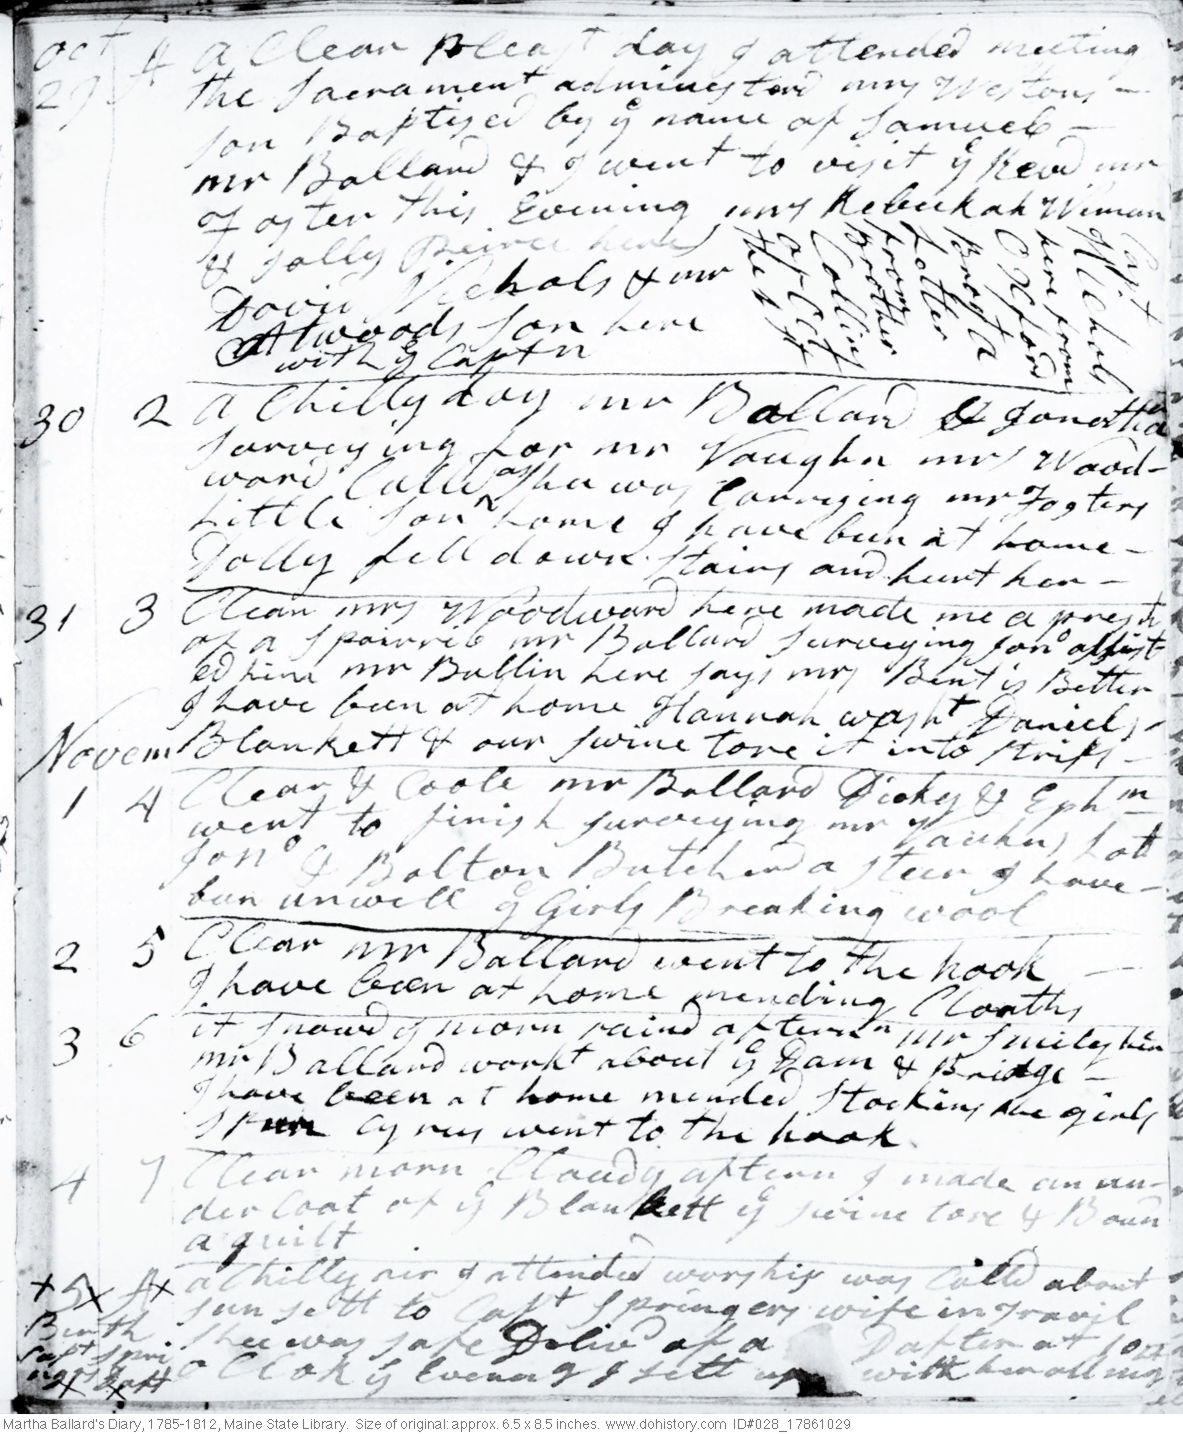 Oct 29 A a Clear Pleast day I attended meeting
the Sacrament administred mrs Westons
son Baptised by ye name of Samuel
mr Ballard & I went to visit ye Revd mr
Foster this Evening mrs Rebeckah Wiman
& Sally Peirce here
David Nichols & mr
Attwoods son here
with ye Captn
Capt
Nichols
here from
Oxford
Brot a
Letter
from
Brother
Collins
of Oct
the
30 2 a Chilly day mr Ballard & Jonathan
surveying for mr Vaughn mrs Wood-
ward Calld as shee was Carrying mr Fosters
Little son home I have been at home
Dolly fell down stairs and hurt her
31 3 Clear mrs Woodward here made me a presnt
of a Spairrib mr Ballard surveying Jono assist
ed him mr Bullin here says mrs Bent is Better
I have been at home Hannah washt Daniels
Novem Blankett & our swine tore it into strips
1 4 Clear & Coole mr Ballard Dicky & Ephm
went to finish surveying mr Vauhns Lott
Jono & Bolton Butcherd a steer I have
ben unwell ye Girls Breaking wool
2 5 Clear mr Ballard went to the hook
I have been at home mending Cloaths
3 6 it snowd ye morn raind aftern mr Smiley here
mr Ballard workt about ye Dam & Bridge
I have been at home mended Stockins the girls
spun Cyrus went to the hook
4 7 Clear morn Cloudy aftern I made an un-
der Coat of ye Blankett ye swine tore & Boun
a quilt
x 5 x A x a Chilly air I attended worship was Calld about
sun sett to Capt Springers wife in Travil
Birth shee was safe Delivd of a Dafter at 10
Capt Spri o Clok ye Evenng I sett up with her all night
ngers Daftr
x x
Martha Ballard's Diary, 1785-1812, Maine State Library. Size of original: approx. 6.5 x 8.5 inches. www.dohistory.com ID#028_17861029